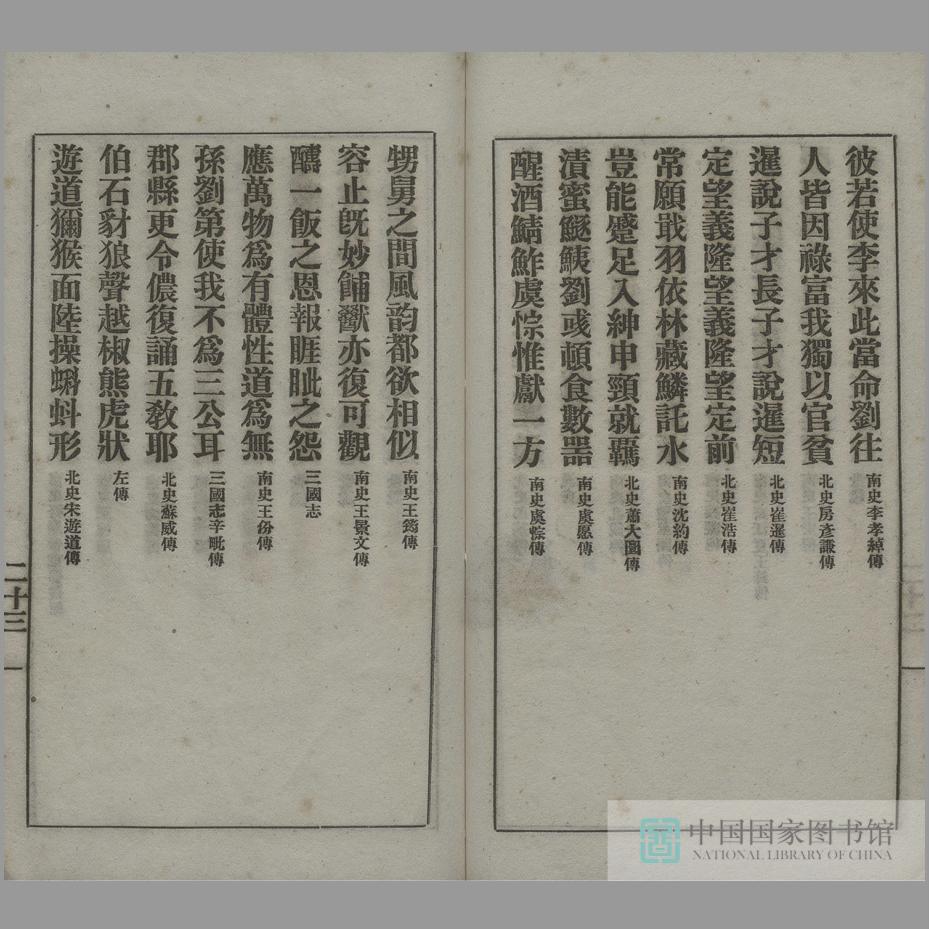 彼若使李來此當命劉往 南史李孝綽傳
人皆因祿富我獨以官貧 北史房彥謙傳
暹說子才長子才說暹短 北史崔暹傳
定望義隆望義隆望定前 北史崔浩傳
常願戢羽依林藏鱗託水 南史沈約傳
豈能蹙足入紳申頸就羈 北史蕭大圜傳
漬蜜鱁鮧劉彧頓食數器 南史虞愿傳
醒酒鯖鮓虞悰惟獻一方 南史虞悰傳
甥舅之間風韵都欲相似 南史王筠傳
容止旣妙餔歠亦復可觀 南史王景文傳
醼一飯之恩報睚眦之怨 三國志
應萬物爲有體性道爲無 南史王份傳
孫劉第使我不爲三公耳 三國志辛毗傳
郡縣更令儂復誦五敎耶 北史蘇威傳
伯石豺狼聲越椒熊虎狀 左傳
遊道獼猴面陸操蝌蚪形 北史宋遊道傳
二十三
中国国家图书馆
NATIONAL LIBRARY OF CHINA